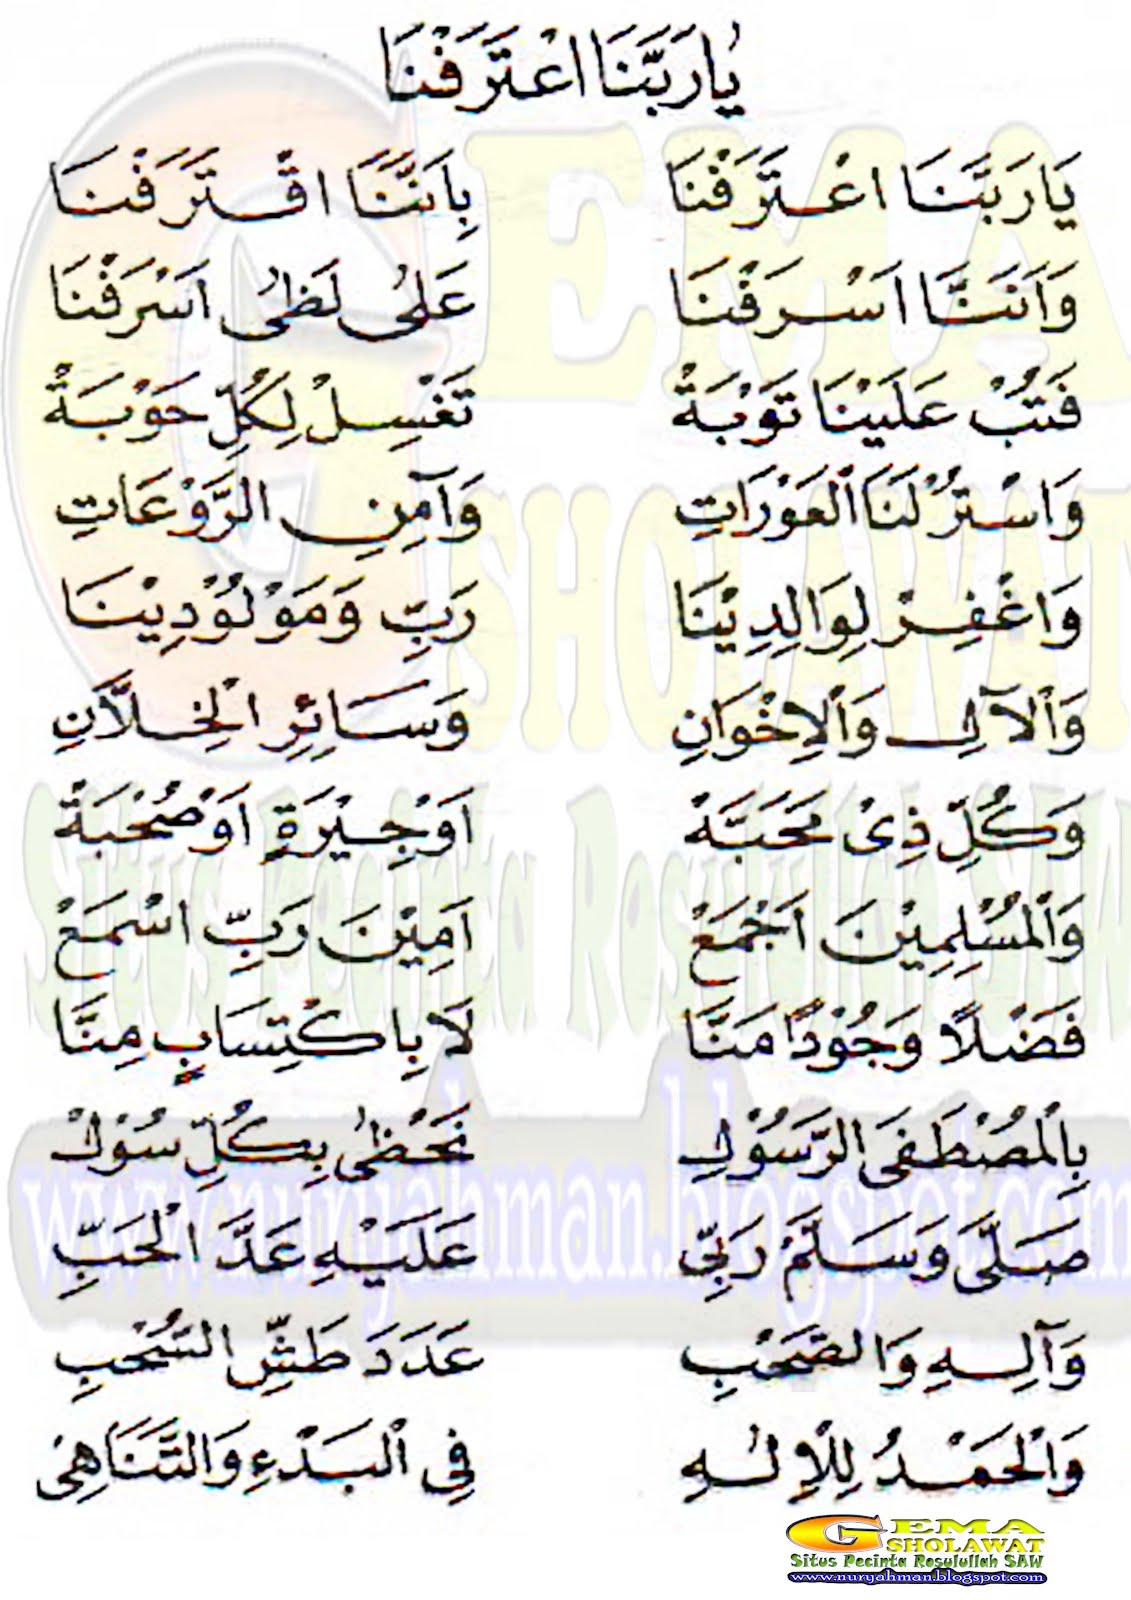 يٰارَبَّنَا اعْتَرَفْنَا
يَارَبَّنَا اعْتَرَفْنَا بِاَنَّنَا اقْتَرَفْنَا
وَاَنَنَّا اَسْرَفْنَا عَلٰى لَظٰى اَشْرَفْنَا
فَتُبْ عَلَيْنَا تَوْبَةْ تَغْسِلْ لِكُلِّ حَوْبَةْ
وَاسْتُرْ لَنَا الْعَوْرَاتِ وَآمِنِ الرَّوْعَاتِ
وَاغْفِرْ لِوَالِدِيْنَا رَبِّ وَمَوْلُوْدِيْنَا
وَاْلآلِ وَاْلاِخْوَانِ وَسَائِرِ الْخِلَّانِ
وَكُلِّ ذِىْ مَحَبَّهْ اَوْجِيْرَةٍ اَوْصُحْبَةْ
وَاْلمُسْلِمِيْنَ اَجْمَعْ اَمِيْنَ رَبِّ اسْمَعْ
فَضْلًا وَجُوْدًا مَنَّا لَا بِاكْتِسَابٍ مِنَّا
بِاْلمُصْطَفَى الرَّسُوْلِ نَحْظٰى بِكُلِّ سُوْلْ
صَلَّى وَسَلَّمْ رَبِّى عَلَيْهِ عَدَّ الْحَبِّ
وَآلِهِ وَالصَّحْبِ عَدَدَ طَشِّ السُّحْبِ
وَاْلحَمْدُ لِلْاِلٰهِ فِى اْلبَدْءِ وَالتَّنَاهِىْ
GEMA
SHOLAWAT
Situs Pecinta Rosulullah SAW
www.nuryahman.blogspot.com
GEMA
SHOLAWAT
Situs Pecinta Rosulullah SAW
www.nuryahman.blogspot.com